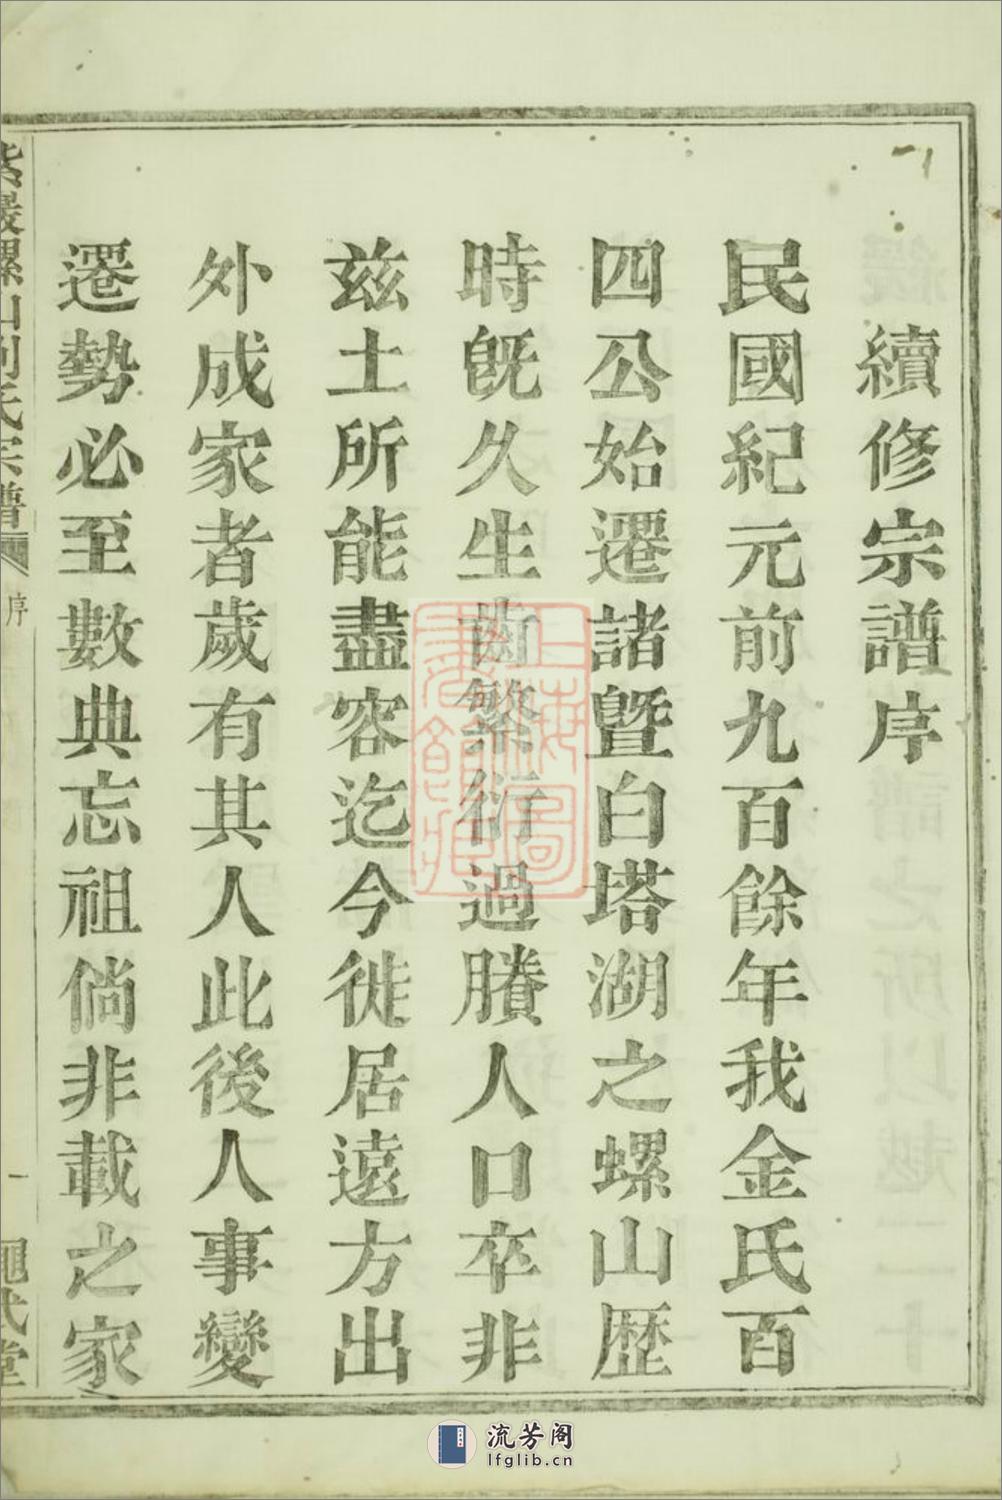 續修宗譜序
民國紀元前九百餘年我金氏百
四公始遷諸暨白塔湖之螺山歷
時旣久生齒繁衍過賸人口卒非
兹土所能盡容迄今徙居遠方出
外成家者歲有其人此後人事變
遷勢必至數典忘祖倘非載之家
紫巖螺山劉氏宗譜
序
一
繩武堂
上海圖書館藏
流芳阁
lfglib.cn